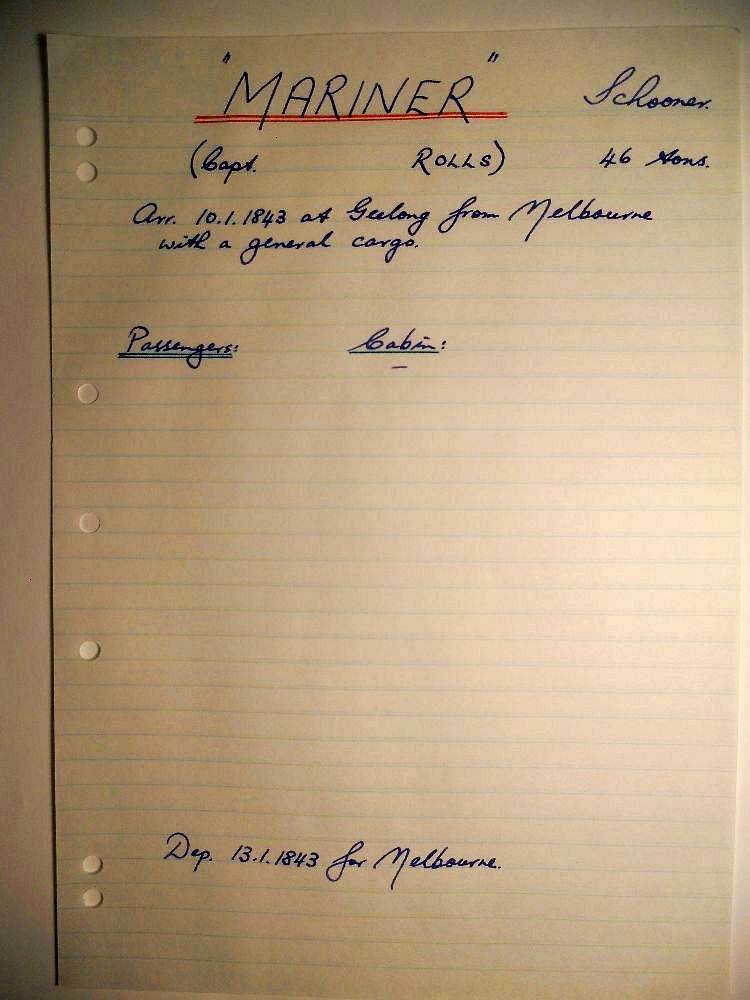 "MARINER" Schooner.
(Capt. ROLLS) 46 tons.
Arr. 10.1.1843 at Geelong from Melbourne
with a general cargo.
Passengers: Cabin:
—
Dep. 13.1.1843 for Melbourne.